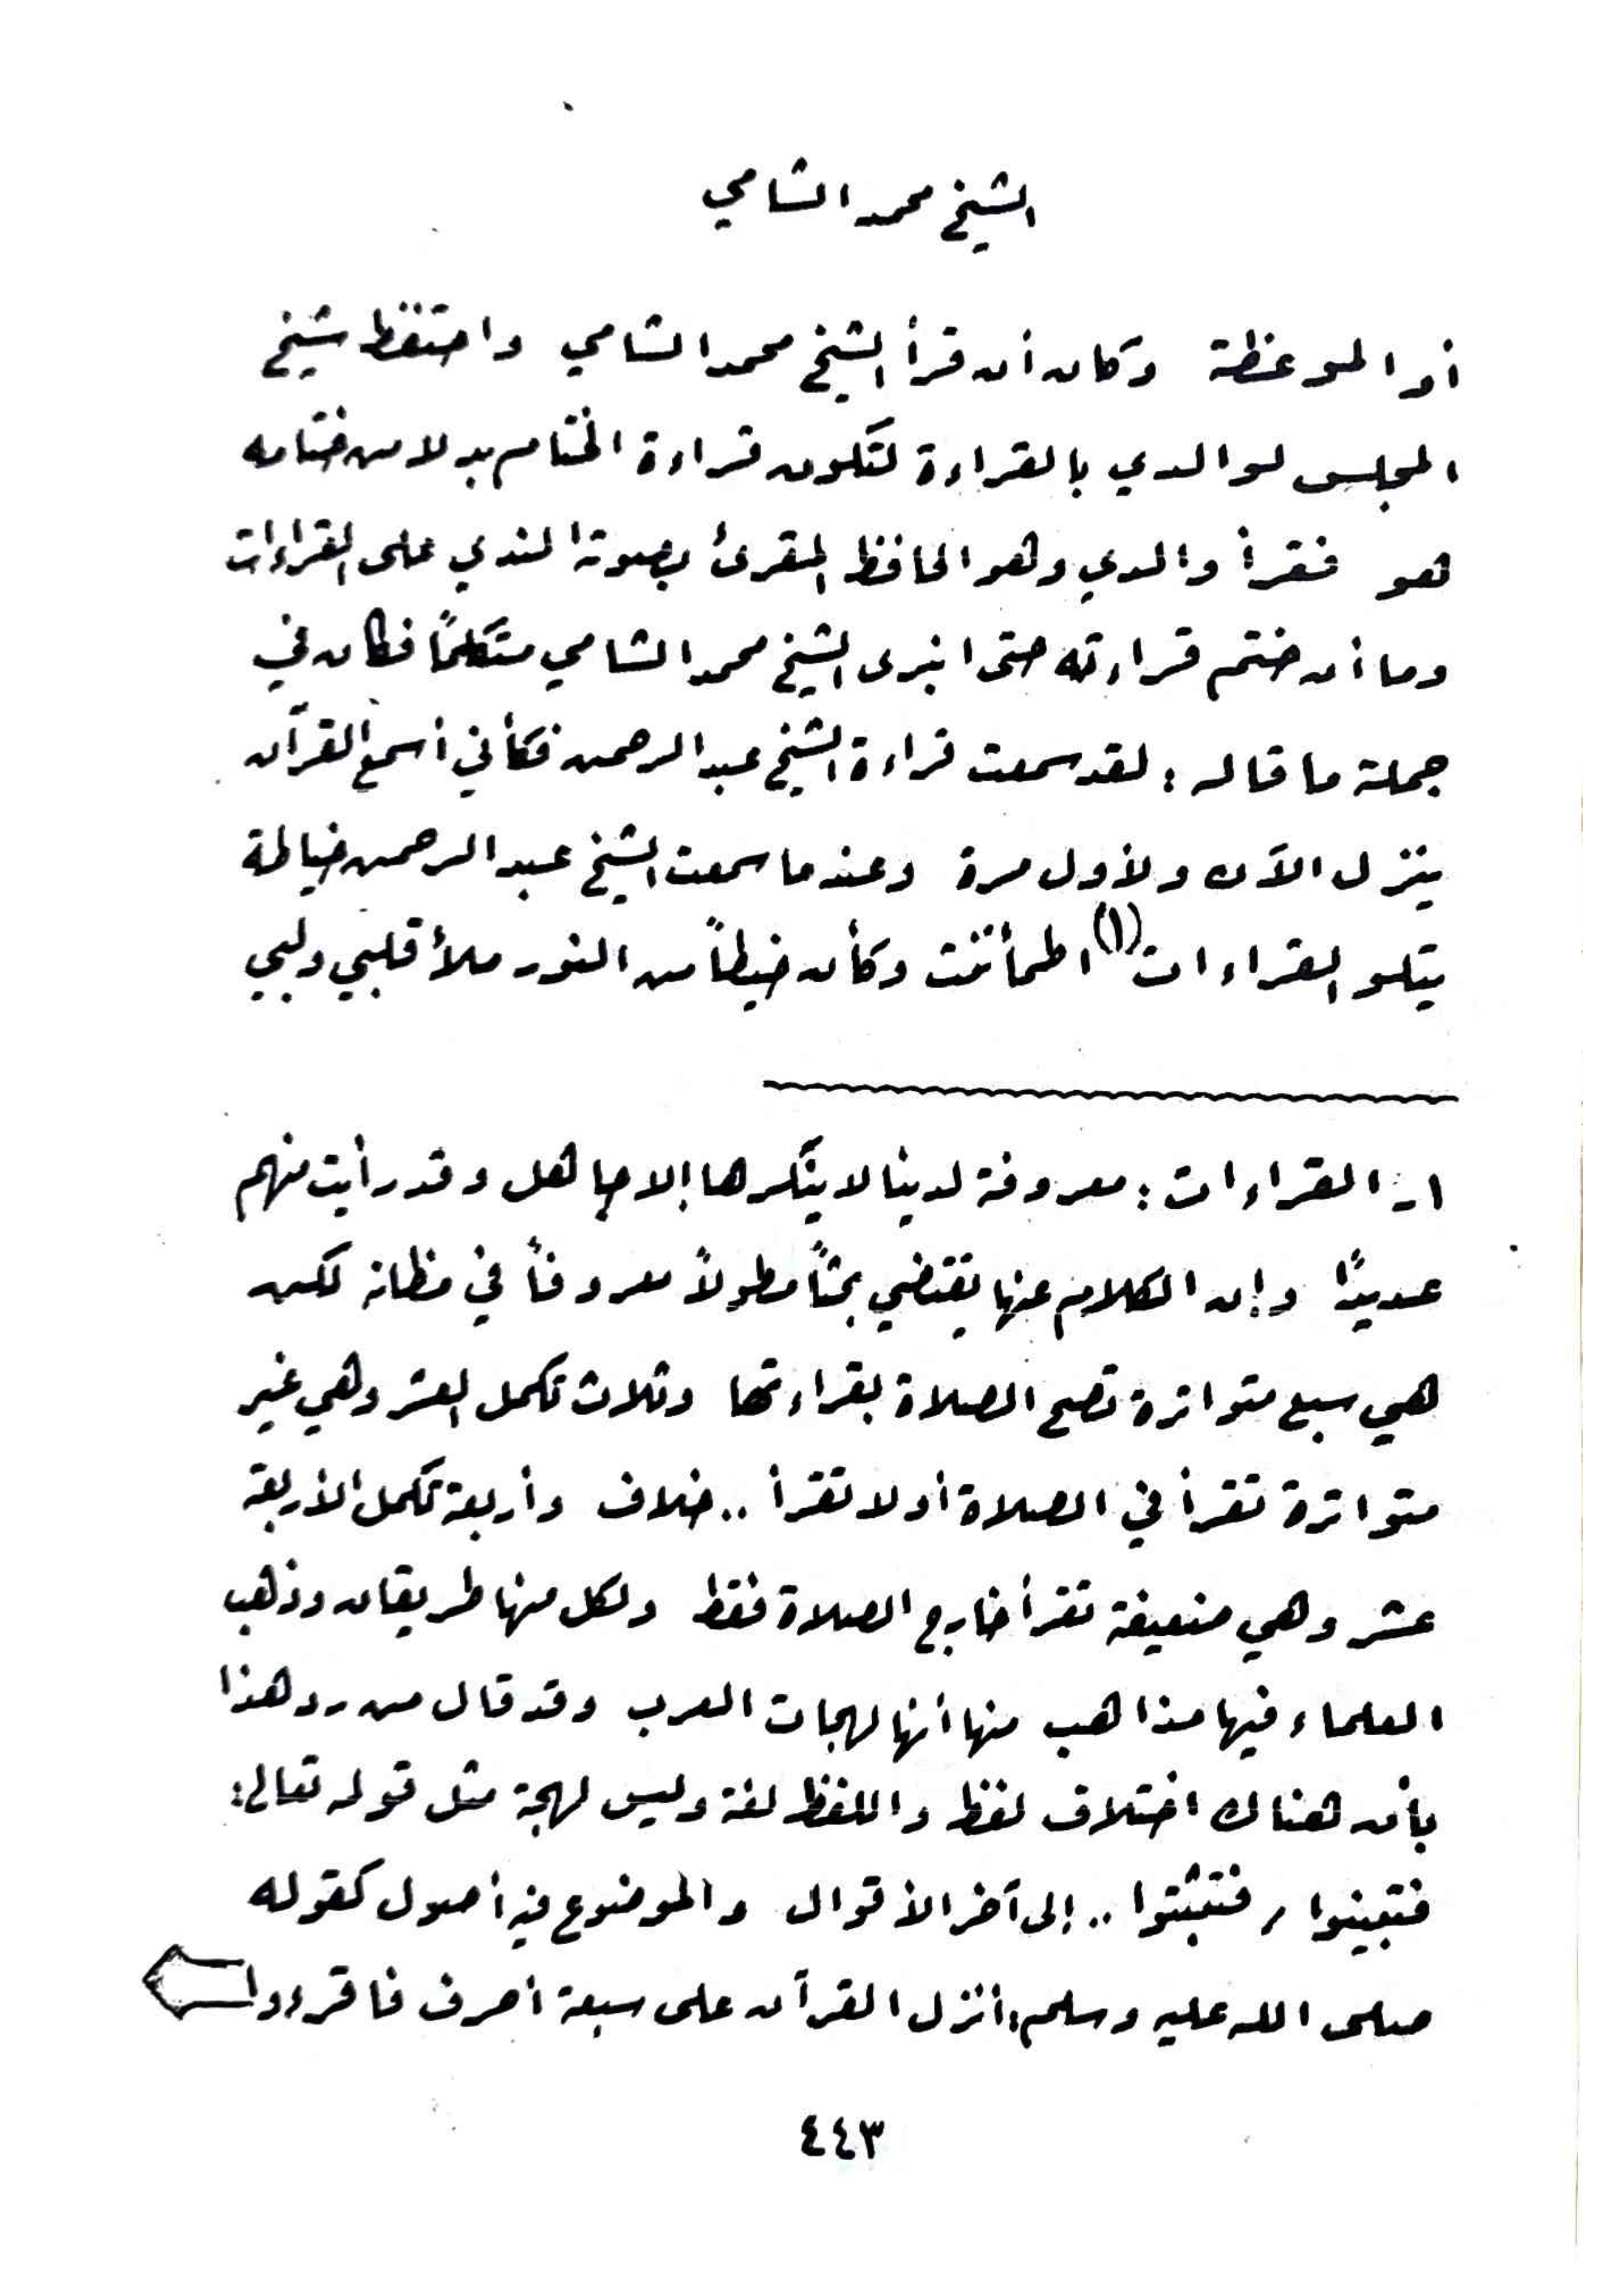 الشيخ محمد الشامي
أو الموعظة وكان أن قرأ الشيخ محمد الشامي واحتفظ شيخ
المجلس لوالدي بالقراءة لتكون قراءة الختام بدلا من ختامه
هو فقرأ والدي وهو الحافظ المقرئ بصوته الندي على القراءات
وما أن ختم قراءته حتى انبرى الشيخ محمد الشامي متكلمًا فكان في
جملة ما قاله : لقد سمعت قراءة الشيخ عبد الرحمن فكأني أسمع القرآن
ينزل الآن ولأول مرة وعندما سمعت الشيخ عبد الرحمن خياطة
يتلو القراءات (١) اطمأننت وكأن خيطاً من النور ملأ قلبي ولبي
١ـ القراءات : معروفة لدينا لا ينكرها إلا جاهل وقد رأيت منهم
عديدًا وإن الكلام عنها يقتضي بحثاً مطولاً معروفاً في مظانه لكن
هي سبع متواترة تصح الصلاة بقراءتها وثلاث تكمل العشر وهي غير
متواترة تقرأ في الصلاة أو لا تقرأ .. خلاف وأربعة تكمل الأربعة
عشر وهي ضعيفة تقرأ خارج الصلاة فقط ولكل منها طريقان وذهب
العلماء فيها مذاهب منها أنها لهجات العرب وقد قال من رد هذا
بأن هناك اختلاف لفظ واللفظ لغة وليس لهجة مثل قوله تعالى :
فتبينوا / فتثبتوا .. إلى آخر الأقوال والموضوع فيه أصول كقوله
صلى الله عليه وسلم : أنزل القرآن على سبعة أحرف فاقرءوا
٤٤٣